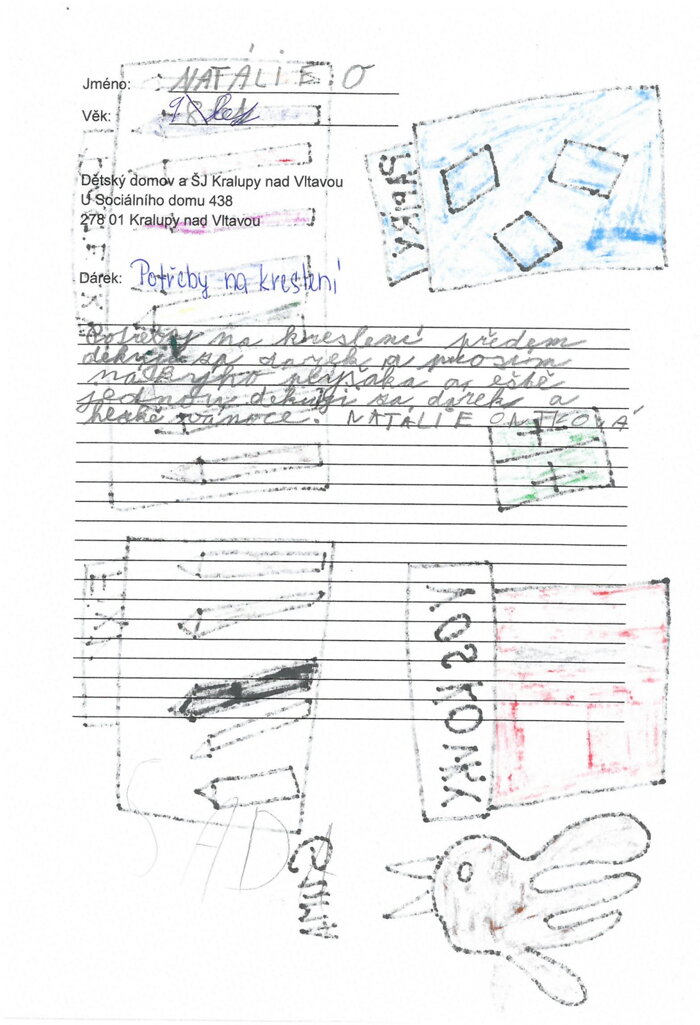 Jméno: NATÁLIE O
Věk: let
Dětský domov a ŠJ Kralupy nad Vltavou
U Sociálního domu 438
278 01 Kralupy nad Vltavou
Dárek: Potřeby na kreslení
Potřeby na kreslení předem
děkuji za dárek a prosím
plyšáka a eště
jednou děkuji za dárek a
hezké vánoce. NATÁLIE
SADA